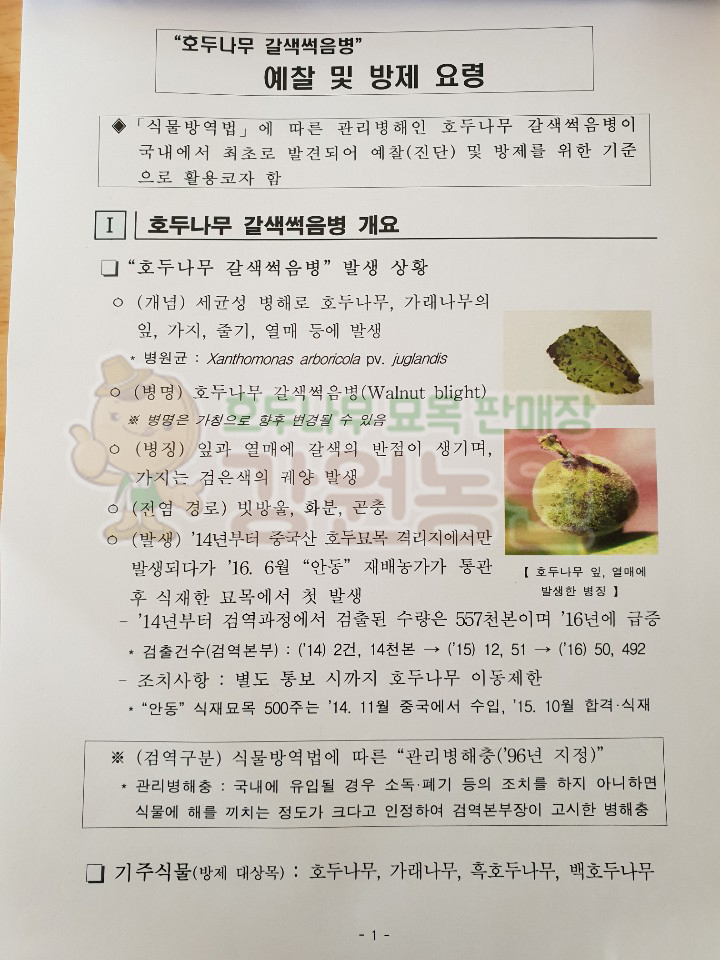 "호두나무 갈색썩음병"
예찰 및 방제 요령
◈「식물방역법」에 따른 관리병해인 호두나무 갈색썩음병이
국내에서 최초로 발견되어 예찰(진단) 및 방제를 위한 기준
으로 활용코자 함
Ⅰ 호두나무 갈색썩음병 개요
❏ "호두나무 갈색썩음병" 발생 상황
○ (개념) 세균성 병해로 호두나무, 가래나무의
잎, 가지, 줄기, 열매 등에 발생
* 병원균 : Xanthomonas arboricola pv. juglandis
○ (병명) 호두나무 갈색썩음병(Walnut blight)
※ 병명은 가칭으로 향후 변경될 수 있음
○ (병징) 잎과 열매에 갈색의 반점이 생기며,
가지는 검은색의 궤양 발생
○ (전염 경로) 빗방울, 화분, 곤충
○ (발생) '14년부터 중국산 호두묘목 격리지에서만
발생되다가 '16. 6월 "안동" 재배농가가 통관
후 식재한 묘목에서 첫 발생
【 호두나무 잎, 열매에
발생한 병징 】
- '14년부터 검역과정에서 검출된 수량은 557천본이며 '16년에 급증
* 검출건수(검역본부) : ('14) 2건, 14천본 → ('15) 12, 51 → ('16) 50, 492
- 조치사항 : 별도 통보 시까지 호두나무 이동제한
* "안동" 식재묘목 500주는 '14. 11월 중국에서 수입, '15. 10월 합격·식재
※ (검역구분) 식물방역법에 따른 "관리병해충('96년 지정)"
* 관리병해충 : 국내에 유입될 경우 소독·폐기 등의 조치를 하지 아니하면
식물에 해를 끼치는 정도가 크다고 인정하여 검역본부장이 고시한 병해충
❏ 기주식물(방제 대상목) : 호두나무, 가래나무, 흑호두나무, 백호두나무
- 1 -
호두나무 묘목 판매장
강원농원